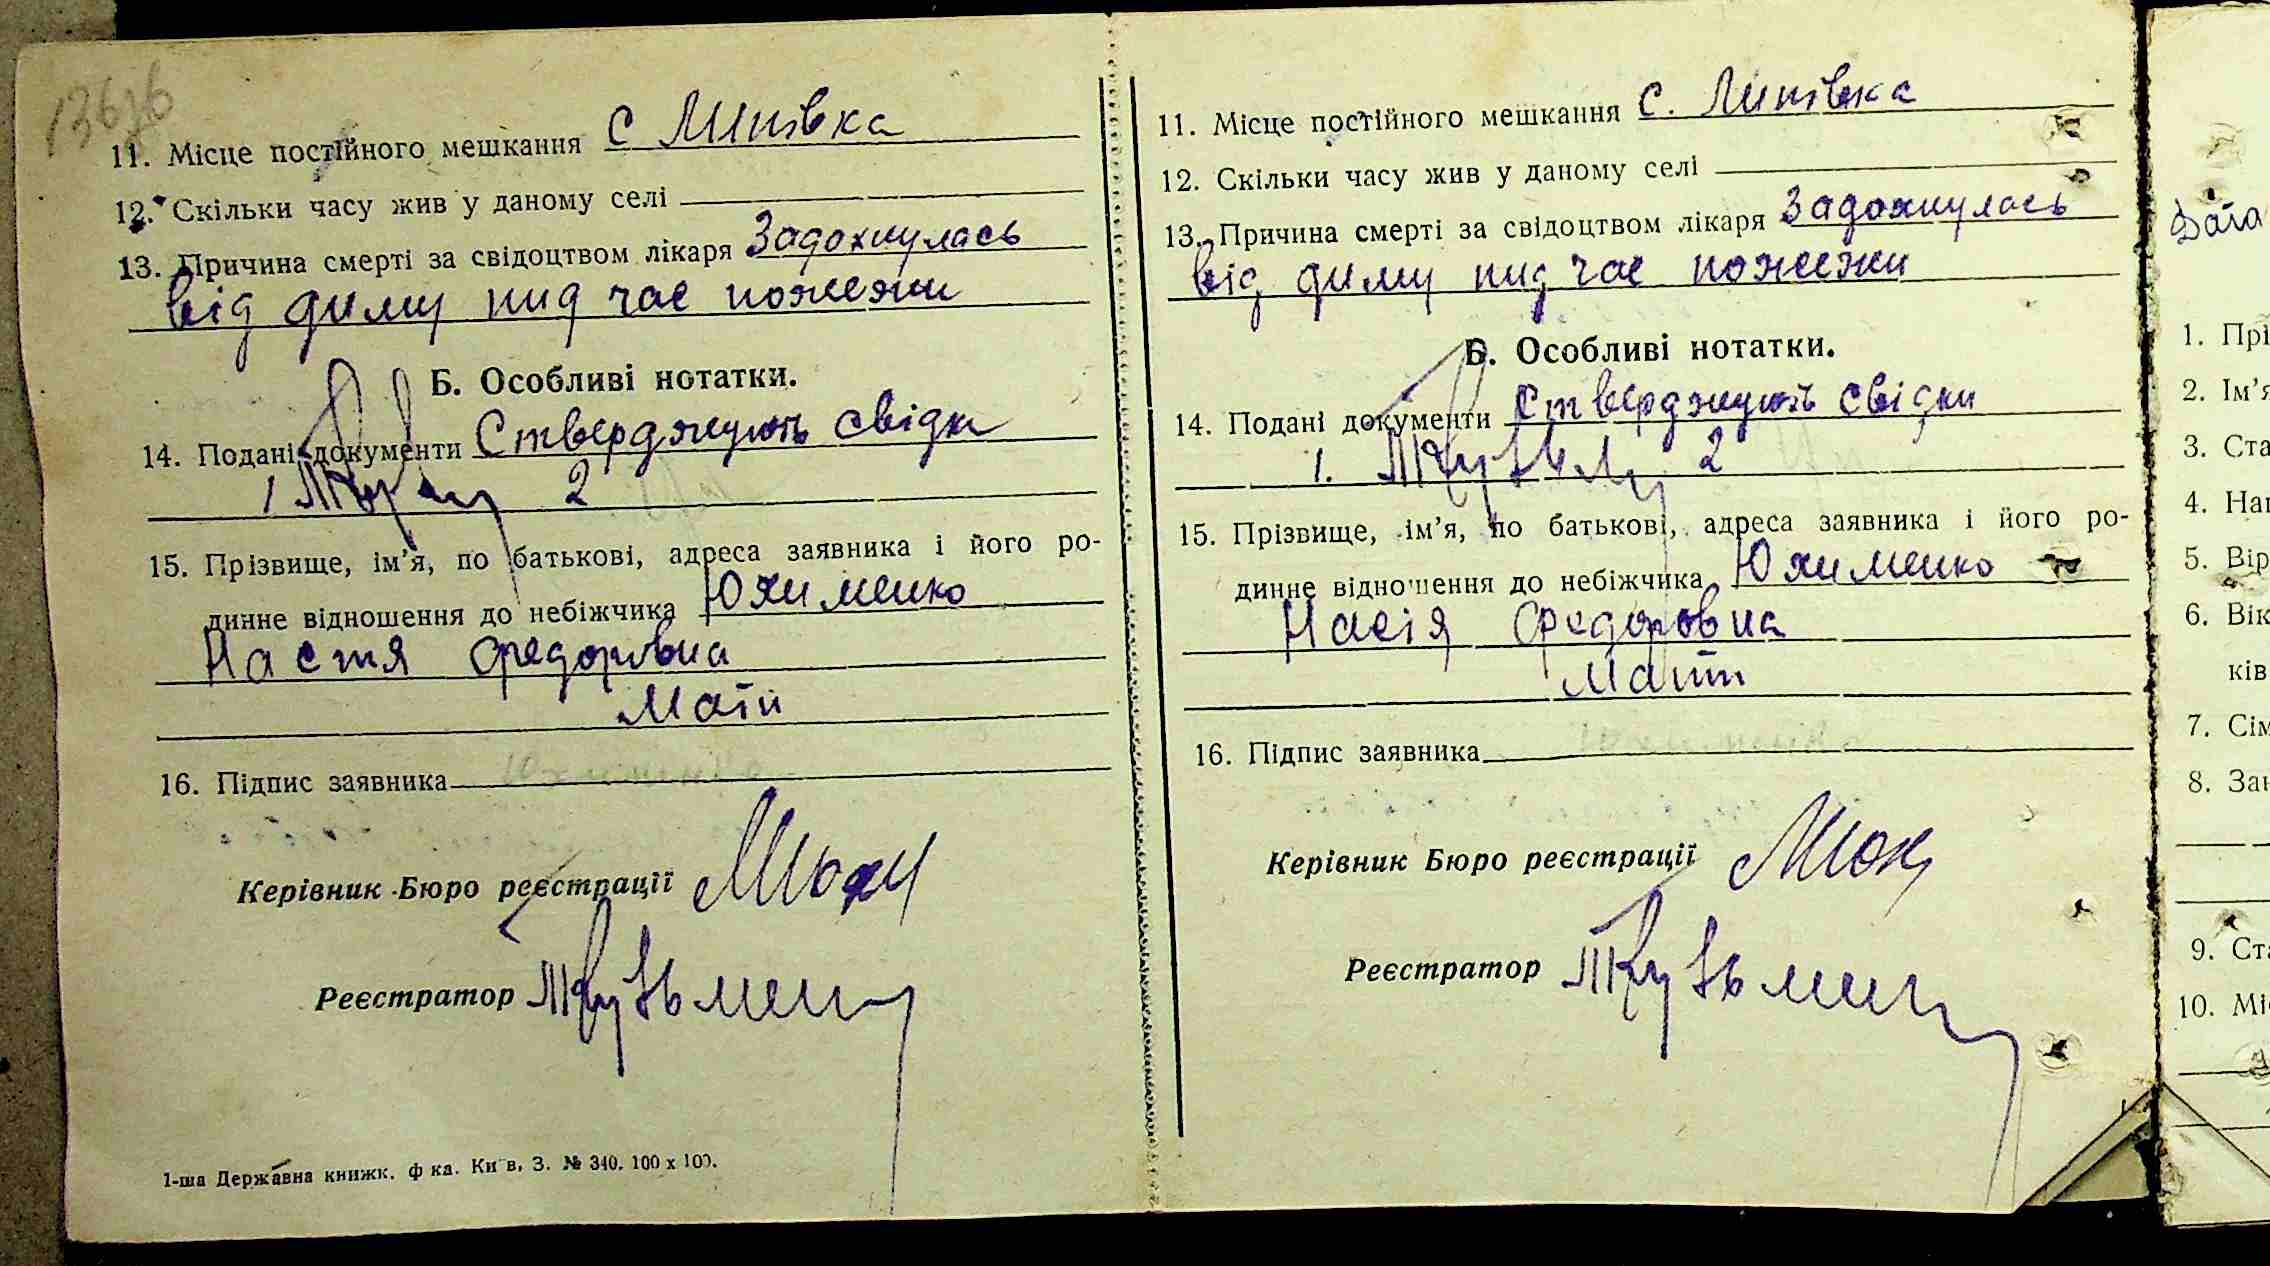 136зв
11. Місце постійного мешкання с Липівка
12. Скільки часу жив у даному селі
13. Причина смерті за свідоцтвом лікаря Задохнулась
від диму пид час пожежи
Б. Особливі нотатки.
14. Подані документи Стверджують свідки
1 2
15. Прізвище, ім'я, по батькові, адреса заявника і його ро-
динне відношення до небіжчика Юхименко
Настя Федоровна
Мати
16. Підпис заявника
Керівник Бюро реєстрації
Реєстратор
1-ша Державна книжк. ф ка. Київ, З. № 340. 100 х 100.
11. Місце постійного мешкання с. Липівка
12. Скільки часу жив у даному селі
13. Причина смерті за свідоцтвом лікаря Задохнулась
від диму пид час пожежи
Б. Особливі нотатки.
14. Подані документи Стверджують свідки
1. 2
15. Прізвище, ім'я, по батькові, адреса заявника і його ро-
динне відношення до небіжчика Юхименко
Федоровна
Мати
16. Підпис заявника
Керівник Бюро реєстрації
Реєстратор
Дата
1. Прі
2. Ім'я
3. Ста
4. Нац
5. Вір
6. Вік
ків
7. Сім
8. Зан
9. Ста
10. Міс